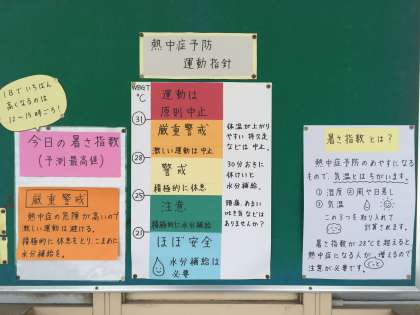 熱中症予防
運動指針
1日でいちばん
高くなるのは
12〜15時ごろ!
今日の暑さ指数
(予測最高値)
厳重警戒
熱中症の危険が高いので
激しい運動は避ける。
積極的に休息をとり、こまめに
水分補給を。
WBGT
℃
運動は
原則中止
31
厳重警戒
激しい運動は中止
28
警戒
積極的に休息
25
注意
積極的に水分補給
21
ほぼ安全
水分補給は
必要
体温が上がり
やすい持久走
などは中止。
30分おきに
休けいと
水分補給。
頭痛、めまい
吐き気などは
ありませんか?
暑さ指数とは?
熱中症予防のめやすになる
もので、気温とはちがいます。
①湿度 ②周や日差し
③気温
この3つを取り入れて
計算されます。
暑さ指数が28℃を超えると
熱中症になる人が増えるので
注意が必要です。